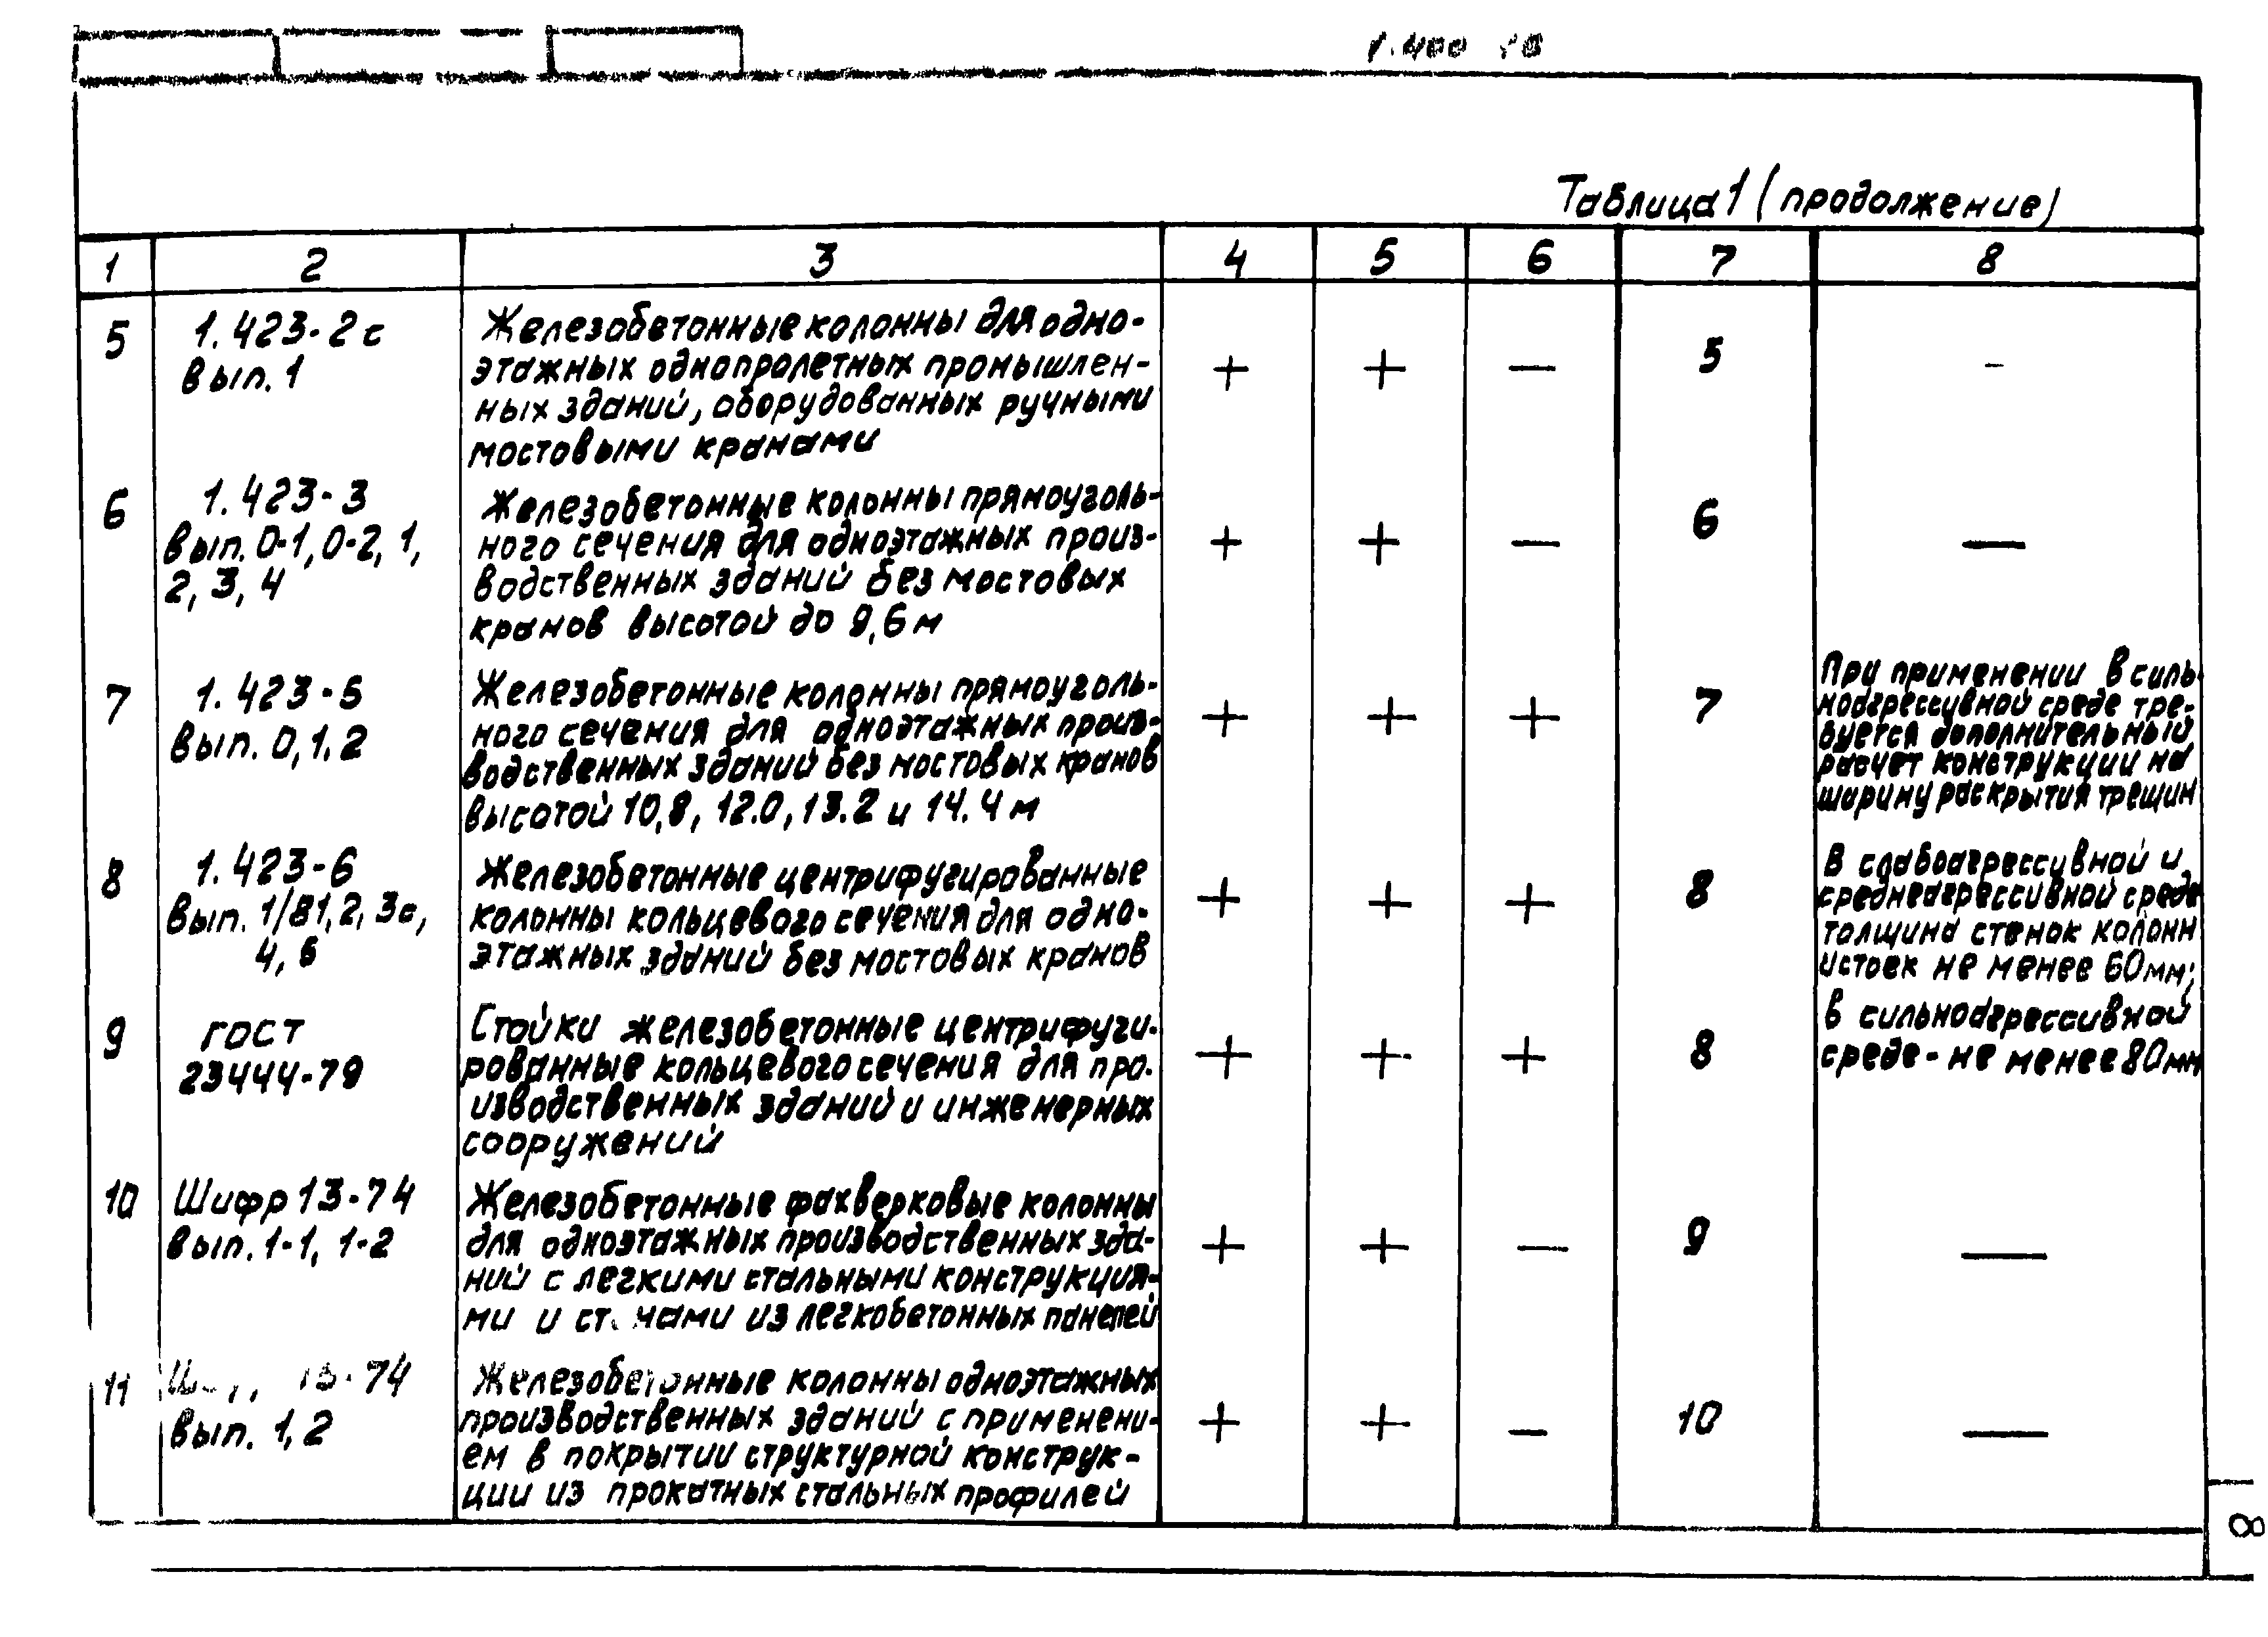 1.400
Таблица 1 (продолжение)
1 2 3 4 5 6 7 8
5 1.423-2с Железобетонные колонны для одно-
вып. 1 этажных однопролетных промышлен- + + — 5 -
ных зданий, оборудованных ручными
мостовыми кранами
6 1.423-3 Железобетонные колонны прямоуголь-
вып. 0-1, 0-2, 1, ного сечения для одноэтажных произ- + + — 6 —
2, 3, 4 водственных зданий без мостовых
кранов высотой до 9,6 м
7 1.423-5 Железобетонные колонны прямоуголь-
вып. 0, 1, 2 ного сечения для одноэтажных произ- + + + 7
водственных зданий без мостовых кранов
высотой 10,8, 12.0, 13.2 и 14.4 м
При применении в силь-
ноагрессивной среде тре-
буется дополнительный
расчет конструкции на
ширину раскрытия трещин
8 1.423-6 Железобетонные центрифугированные
вып. 1/81, 2, 3с, колонны кольцевого сечения для одно- + + + 8
4, 5 этажных зданий без мостовых кранов
В слабоагрессивной и
среднеагрессивной среде
толщина стенок колонн
и стоек не менее 60мм;
в сильноагрессивной
среде - не менее 80мм
9 ГОСТ Стойки железобетонные центрифуги-
23444-79 рованные кольцевого сечения для про- + + + 8
изводственных зданий и инженерных
сооружений
10 Шифр 13-74 Железобетонные фахверковые колонны
вып. 1-1, 1-2 для одноэтажных производственных зда- + + — 9 —
ний с легкими стальными конструкция-
ми и стенами из легкобетонных панелей
11 13-74 Железобетонные колонны одноэтажных
вып. 1, 2 производственных зданий с применени- + + — 10 —
ем в покрытии структурной конструк-
ции из прокатных стальных профилей
8